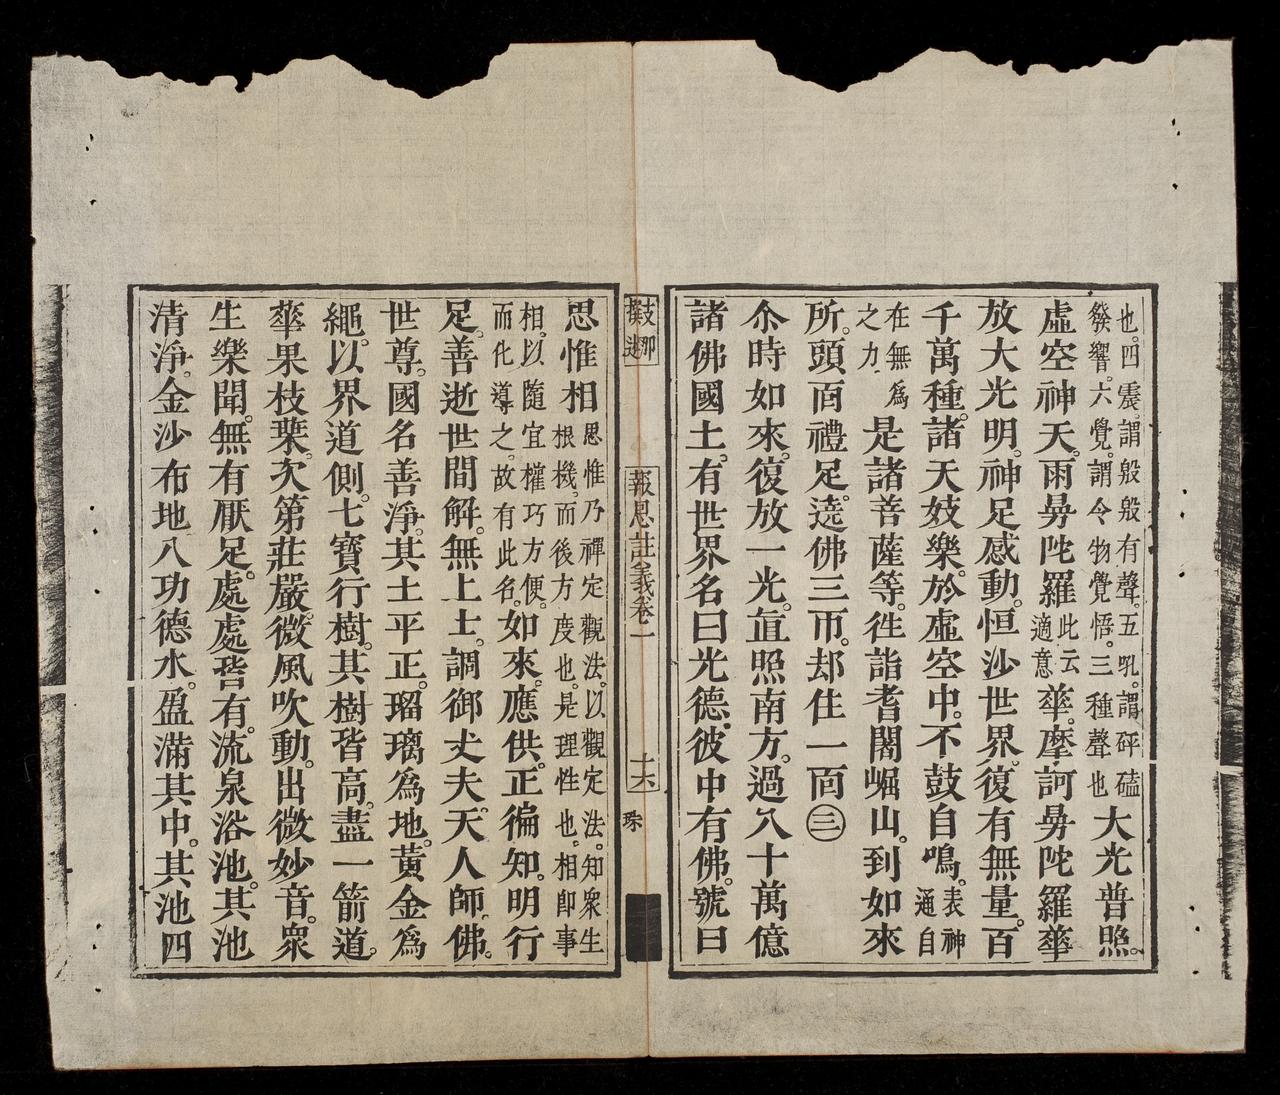 也。四震。謂殷殷有聲。五吼。謂砰磕
發響。六覺。謂令物覺悟。三種聲也大光普照。
虛空神天。雨曼陀羅此云適意華。摩訶曼陀羅華
放大光明。神足感動。恒沙世界。復有無量。百
千萬種。諸天妓樂。於虛空中。不鼓自鳴。表神通自
在無爲之力是諸菩薩等。往詣耆闍崛山。到如來
所。頭面禮足。遶佛三帀。却住一面㊂
尒時如來。復放一光。直照南方。過八十萬億
諸佛國土。有世界名曰光德。彼中有佛。號曰
支那
撰述
報恩註義卷一
十六
珠
思惟相思惟乃禪定觀法。以觀定法。知衆生
根機。而後方度也。是理性也。相卽事
相。以隨宜權巧方便。
而化導之。故有此名。如來。應供。正徧知。明行
足。善逝世間解。無上士。調御丈夫。天人師。佛。
世尊。國名善淨。其土平正。瑠璃爲地。黃金爲
繩。以界道側。七寶行樹。其樹皆高。盡一箭道。
華果枝葉。次第莊嚴。微風吹動。出微妙音。衆
生樂聞。無有厭足。處處皆有。流泉浴池。其池
清淨。金沙布地八功德水。盈滿其中。其池四